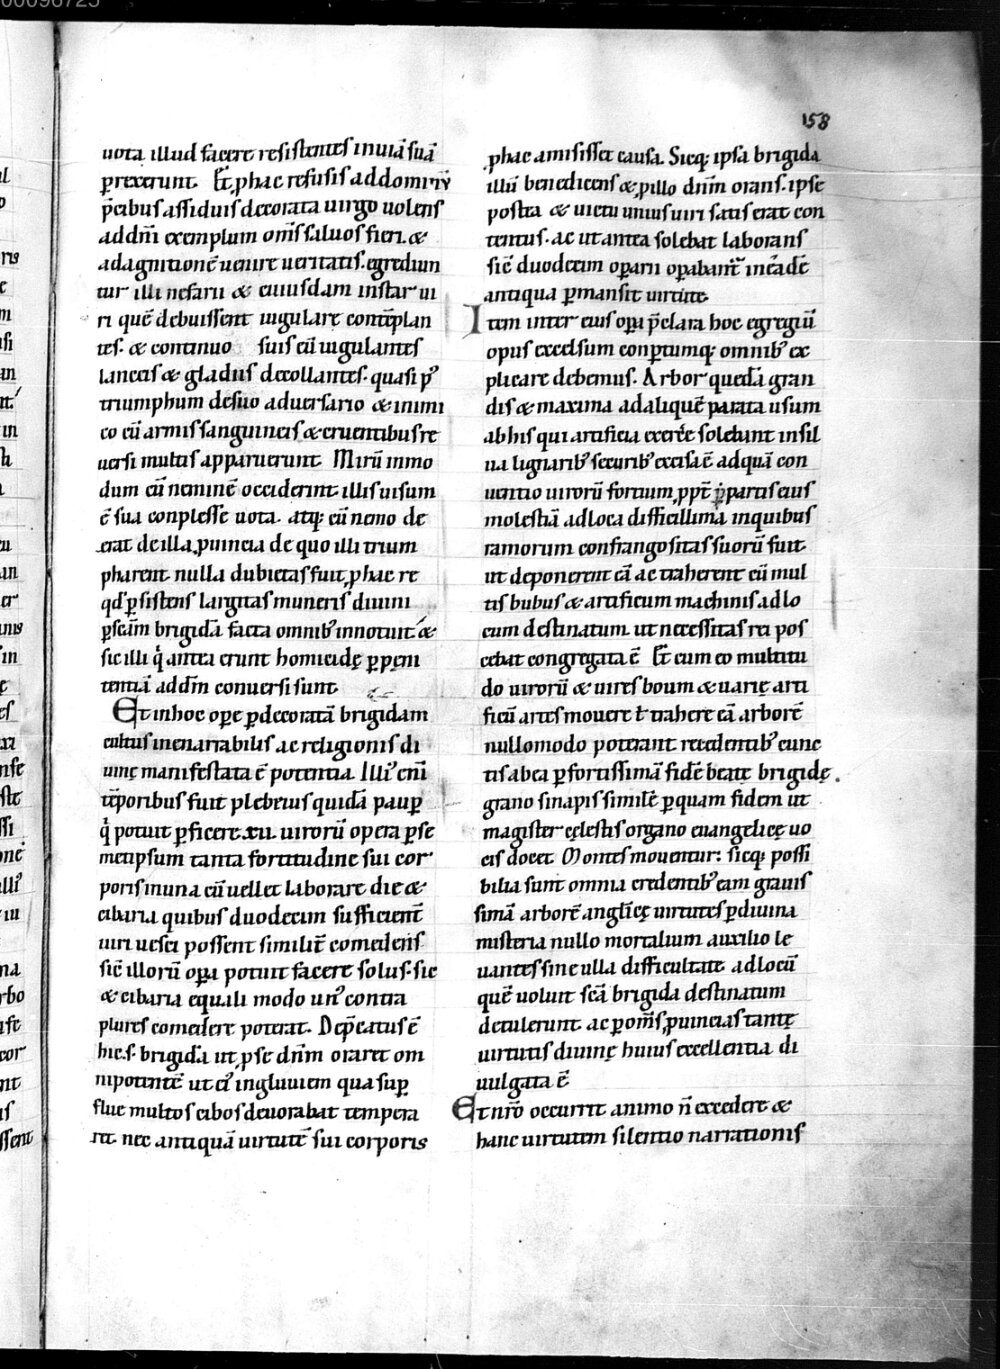 00098725
158
uota illud facere resistentes in uiā suā
prexerunt. Et phac refusis ad dominū
p̄cibus assiduis decorata uirgo uolens
ad dn̄i exemplum om̄s saluos fieri. &
ad agnitionē uenire ueritatis. egrediun
tur illi nefarii & cuiusdam instar ui
ri quē debuissent iugulare contēplan
tes. & continuo suis eū iugulantes
lanceis & gladiis decollantes. quasi p̾
triumphum de suo aduersario & inimi
co cū armis sanguineis & cruentibus re
uersi multis apparuerunt. Mirū inmo
dum cū neminē occiderint illis uisum
ē sua conplesse uota. atq; cū nemo de
erat de illa ꝓuincia de quo illi trium
pharent nulla dubietas fuit, phac re
qd̾ psistens largitas muneris diuini
p scām brigidā facta omnib; innotuit &
sic illi q̾ antea erunt homicidę p pęni
tentiā ad dn̄m conuersi sunt
Et in hoc ope pdecoratā brigidam
cultus inenarrabilis ac religionis di
uinę manifestata ē potentia. Illi᾽ eni
tēporibus fuit plebeius quidā paup
q̾ potuit pficere .xii. uirorū opera p se
metipsum tanta fortitudine sui cor
poris in una cū uellet laborare die &
cibaria quibus duodecim sufficient̄
uiri uesci possent similit̄ comedens.
sic̄ illorū opa potuit facere solus. sic
& cibaria equali modo un᾽ contra
plures comedere poterat. Dep̄catus ē
hic .s. brigidā ut p se dn̄m oraret om
nipotentē ut ei᾽ ingluuiem qua sup
flue multos cibos deuorabat tempera
ret nec antiquā uirtutē sui corporis
phac amisisset causa. Sicq; ipsa brigida
illū benedicens & ꝓ illo dn̄m orans. ipse
postea & uictu unius uiri satis erat con
tentus. ac ut antea solebat laborans
sic̄ duodecim oparii opabant᾽ in eadē
antiqua pmansit uirtute.
Item inter eius opa p̄clara hoc egregiū
opus excelsum conptumq; omnib; ex
plicare debemus. Arbor quedā gran
dis & maxima ad aliquē parata usum
ab his qui artificia exercere solebant in sil
ua lignarib; securib; excisa ē ad quā con
uentio uirorū fortium ꝓpt̄ partis eius
molestiā ad loca difficillima in quibus
ramorum confrangositas suorū fuit
ut deponerent eā ac traherent cū mul
tis bubus & artificum machinis ad lo
cum destinatum. ut necessitas rei pos
cebat congregata ē. Et cum eo multitu
do uirorū & uires boum & uarię arti
ficū artes mouere ł trahere eā arborē
nullomodo poterant recedentib; cunc
tis ab ea p fortissimā fidē beatę brigidę.
grano sinapis similē p quam fidem ut
magister cęlestis organo euangelicę uo
cis docet. Montes mouentur: sicq; possi
bilia sunt omnia credentib; eam grauis
simā arborē anglicę uirtutes p diuina
misteria nullo mortalium auxilio le
uantes sine ulla difficultate ad locū
quē uoluit scā brigida destinatum
detulerunt. ac p om̄s ꝓuincias tantę
uirtutis diuinę huius excellentia di
uulgata ē
Et nr̄o occurrit animo n̄ excedere &
hanc uirtutem silentio narrationis